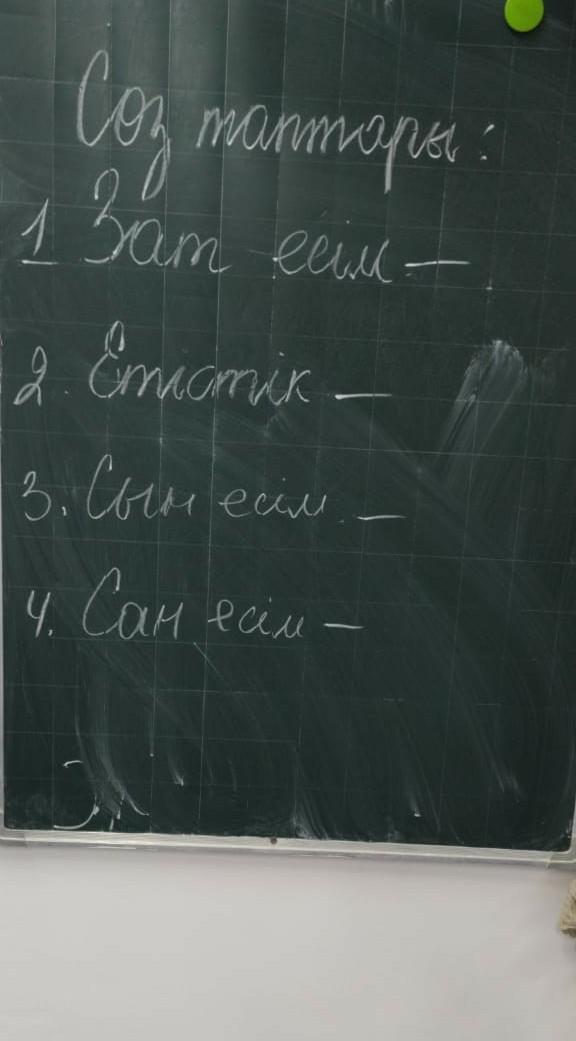 Сөз таптары:
1 Зат есім –
2. Етістік –
3. Сын есім –
4. Сан есім –